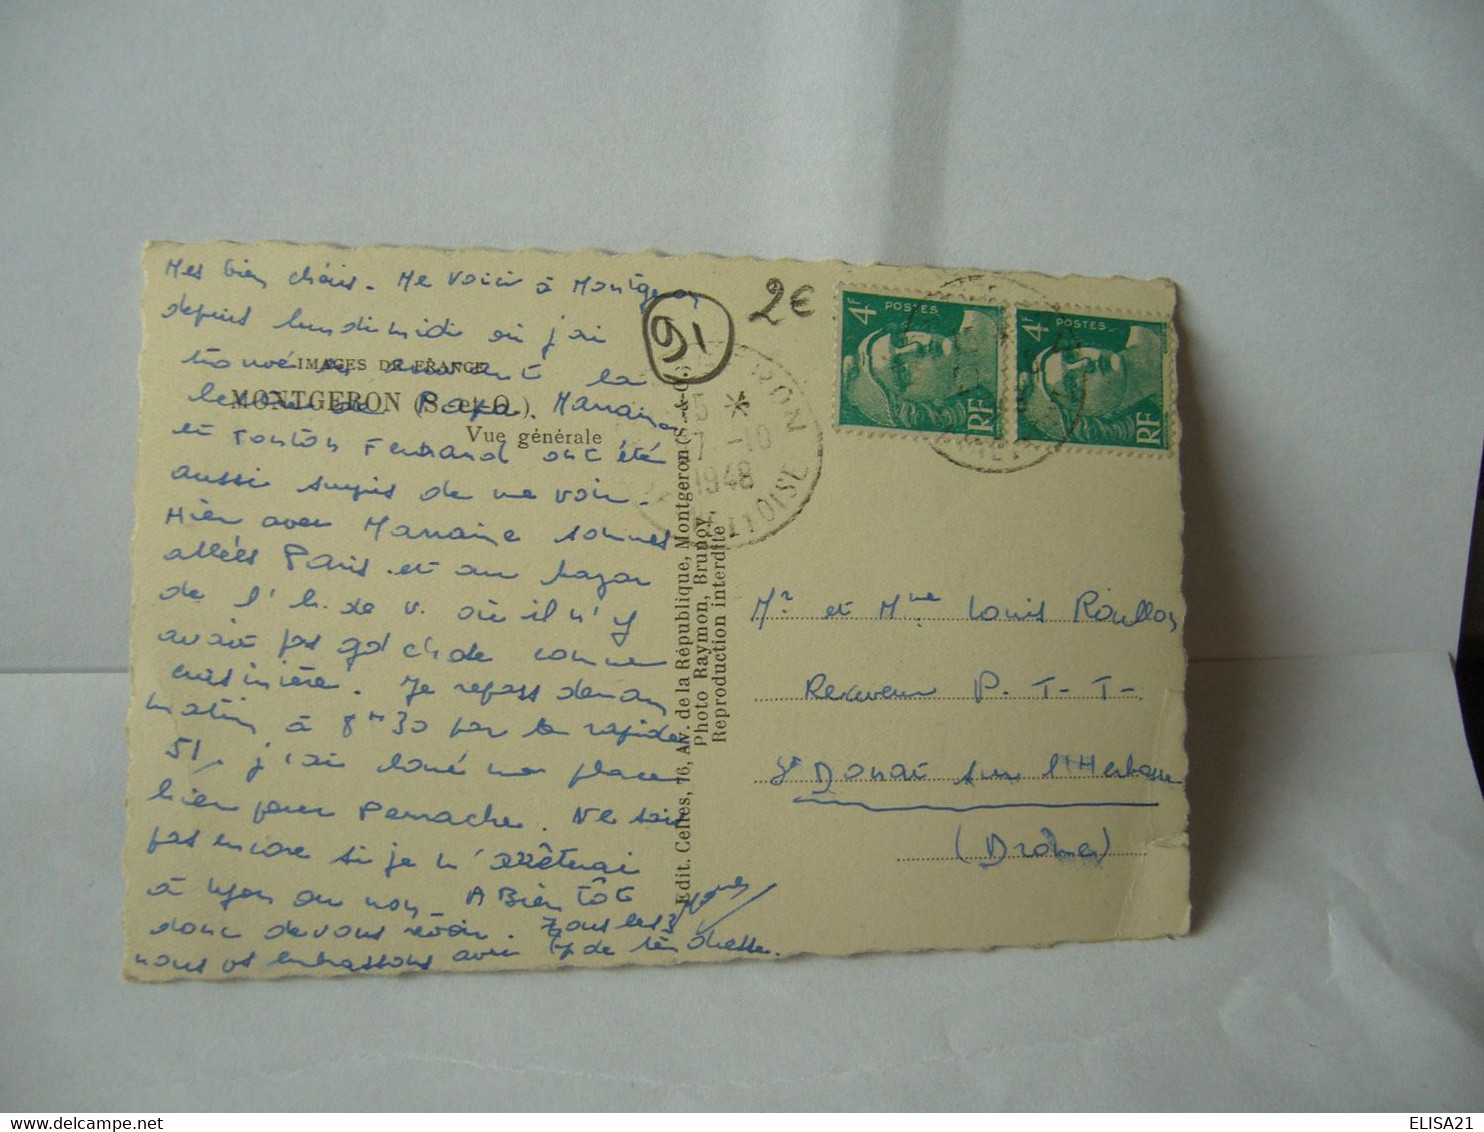 Mes bien chéris. Me voici à Montgeron
depuis lundi midi où j'ai
trouvé en arrivant la
IMAGES DE FRANCE
lettre de Papa. Marraine
MONTGERON (S.-et-O.)
Vue générale
et Tonton Fernand ont été
aussi surpris de me voir.
Hier avec Marraine sommes
allées Paris. et au bazar
de l'h. de V. où il n'y
avait pas god chode comme
cuisinière. Je repars demain
matin à 8h30 par le rapide
51. j'ai loué ma place
hier pour Perrache. Ne sais
pas encore si je m'arrêterai
à Lyon ou non. A Bientôt
donc de vous revoir. Tous les 3
nous vs embrassons avec bp de tendresse.
Edit. Celles, 76, Av. de la République, Montgeron (S.-&-O.)
Photo Raymon, Brunoy.
Reproduction interdite
91
2€
MONTGERON
15 *
7-10
1948
SEINE ET OISE
4F POSTES RF
4F POSTES RF
Mr et Mme Louis Roullon
Receveur P.T.T.
St Donat sur l'Herbasse
(Drôme)
ELISA21